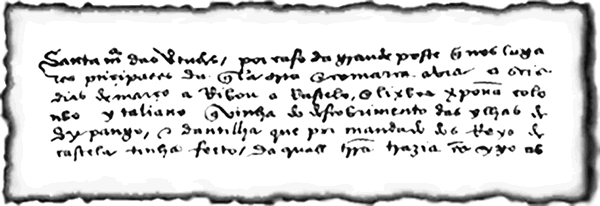 Santa mª das Vtudes, por caso da grande peste q̃ nos luga
res p'ncipaees da q̃lla comarca avia a seis
dias de março a Ribou a Restelo, ẽ lixboa xpouã colo
nbo ytaliano q̃ vinha do descobrimento das ylhas de
cypango, e dantilha que por mandado dos Reys de
castela tinha fecto, da quall trrã trazia cõ sygo as